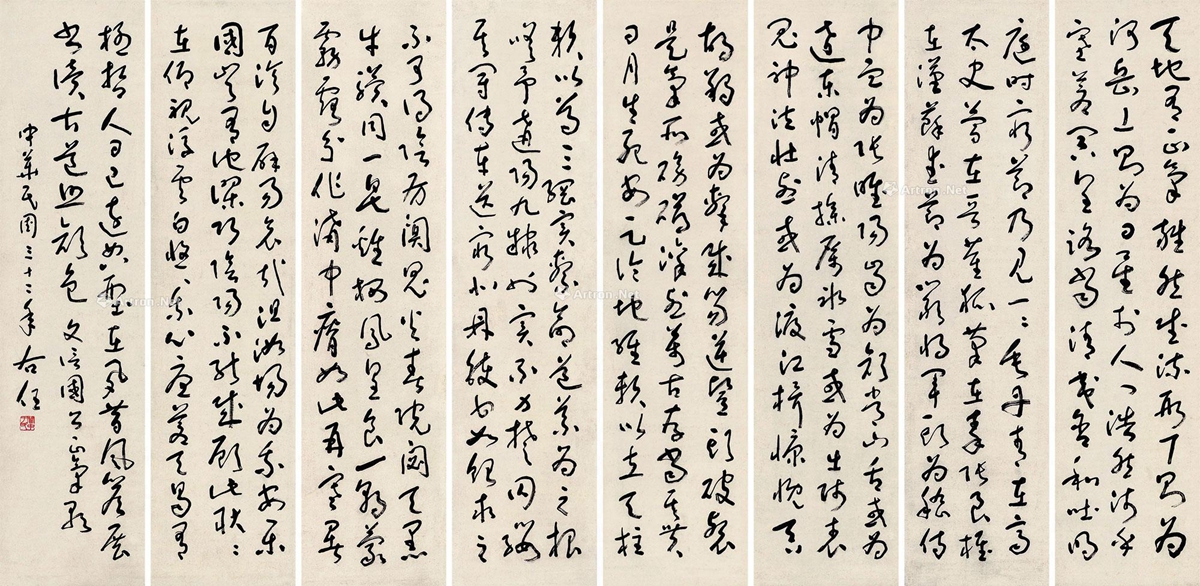 天地有正氣雜然賦流形下則為
河嶽上則為日星於人曰浩然沛乎
塞蒼冥皇路當清夷含和吐明
庭時窮節乃見一々垂丹青在齊
太史簡在晉董狐筆在秦張良椎
在漢蘇武節為嚴將軍頭為嵇侍
中血為張睢陽齒為顏常山舌或為
遼東帽清操厲冰雪或為出師表
鬼神泣壯烈或為渡江楫慷慨吞
胡羯或為擊賊笏逆豎頭破裂
是氣所磅礴凜烈萬古存當其貫
日月生死安足論地維賴以立天柱
賴以尊三綱實繫命道義為之根
嗟予遘陽九隸也實不力楚囚纓
其冠傳車送窮北鼎鑊甘如飴求之
不可得陰房闃鬼火春院閟天黑
牛驥同一皂雞棲鳳凰食一朝蒙
霧露分作溝中瘠如此再寒暑
百沴自辟易哀哉沮洳場為我安樂
國豈有他繆巧陰陽不能賊顧此耿々
在仰視浮雲白悠々我心憂蒼天曷有
極哲人日已遠典型在夙昔風簷展
書讀古道照顏色 文信國公正氣歌
中華民國三十二年 右任
Artron.Net
Artron.Net
Artron.Net